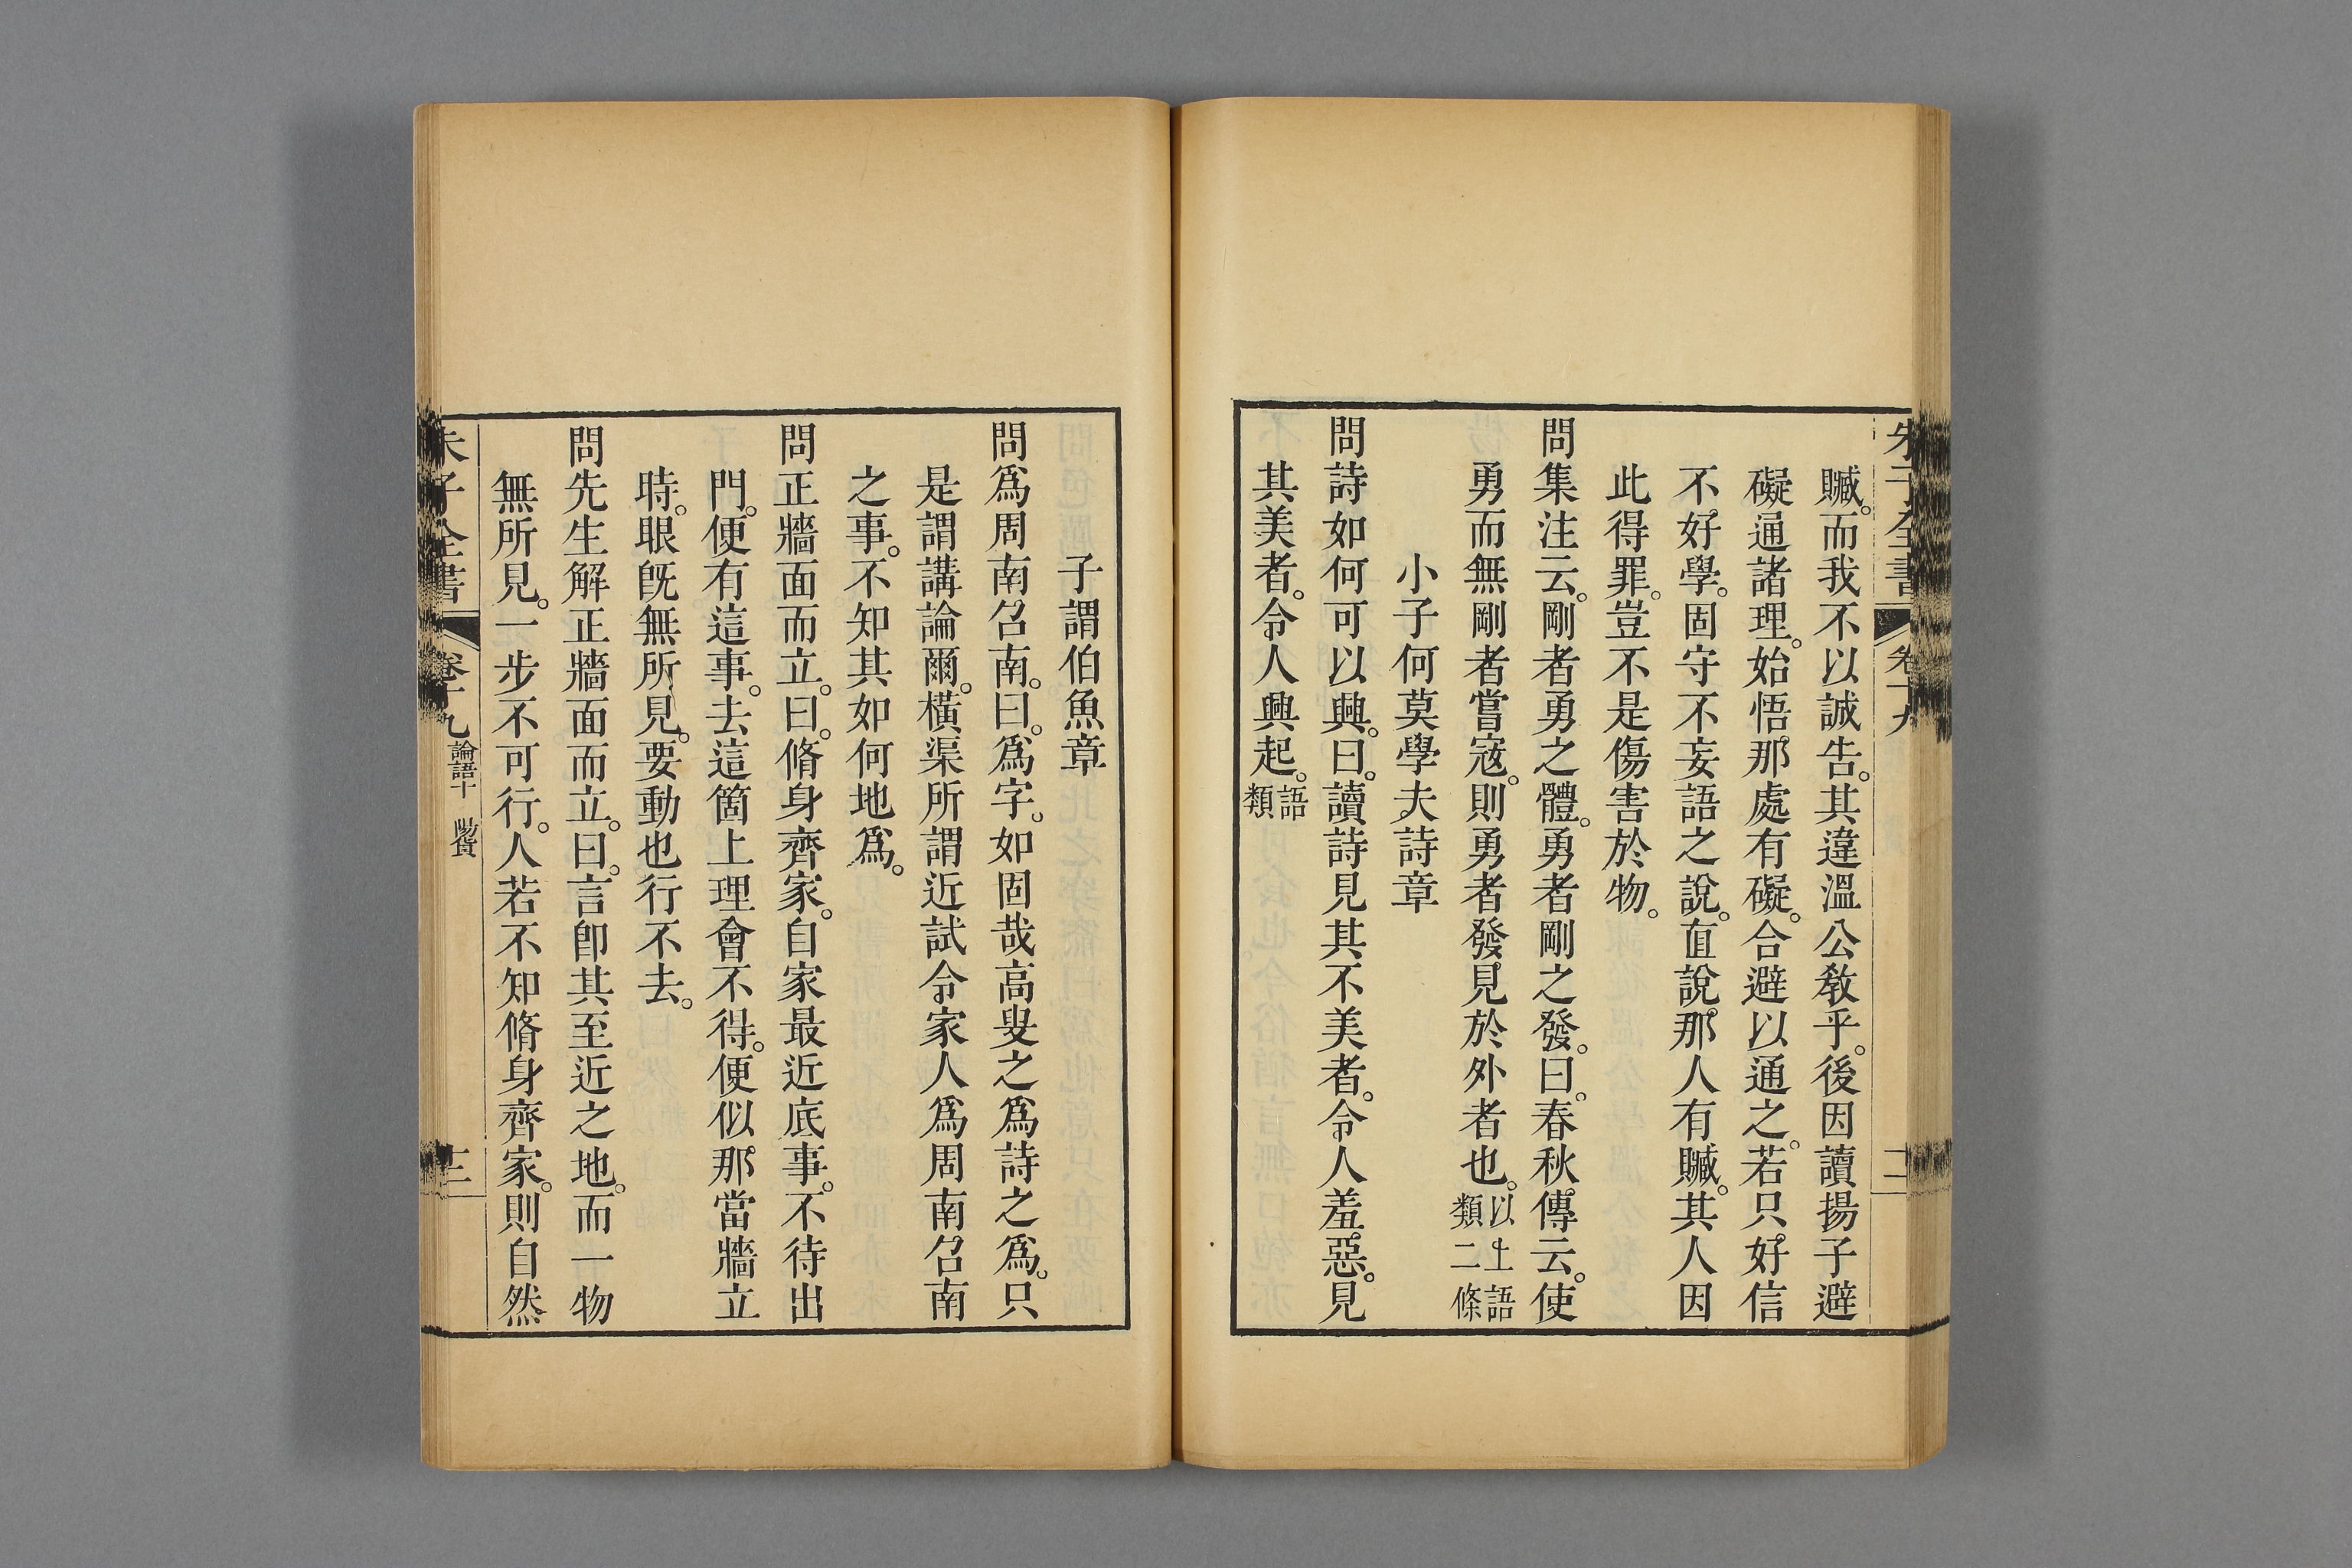 朱子全書 卷十九
贓。而我不以誠告。其違溫公敎乎。後因讀揚子避
礙通諸理。始悟那處有礙。合避以通之。若只好信
不好學。固守不妄語之說。直說那人有贓。其人因
此得罪。豈不是傷害於物。
問集注云。剛者勇之體。勇者剛之發。曰。春秋傳云。使
勇而無剛者嘗寇。則勇者發見於外者也。以上語類二條
小子何莫學夫詩章
問詩如何可以興。曰。讀詩見其不美者。令人羞惡。見
其美者。令人興起。語類
子謂伯魚章
問爲周南召南。曰。爲字。如固哉高叟之爲詩之爲。只
是謂講論爾。橫渠所謂近試令家人爲周南召南
之事。不知其如何地爲。
問正牆面而立。曰。脩身齊家。自家最近底事。不待出
門。便有這事。去這箇上理會不得。便似那當牆立
時。眼旣無所見。要動也行不去。
問先生解正牆面而立。曰。言卽其至近之地。而一物
無所見。一步不可行。人若不知脩身齊家。則自然
朱子全書 卷十九 論語十 陽貨